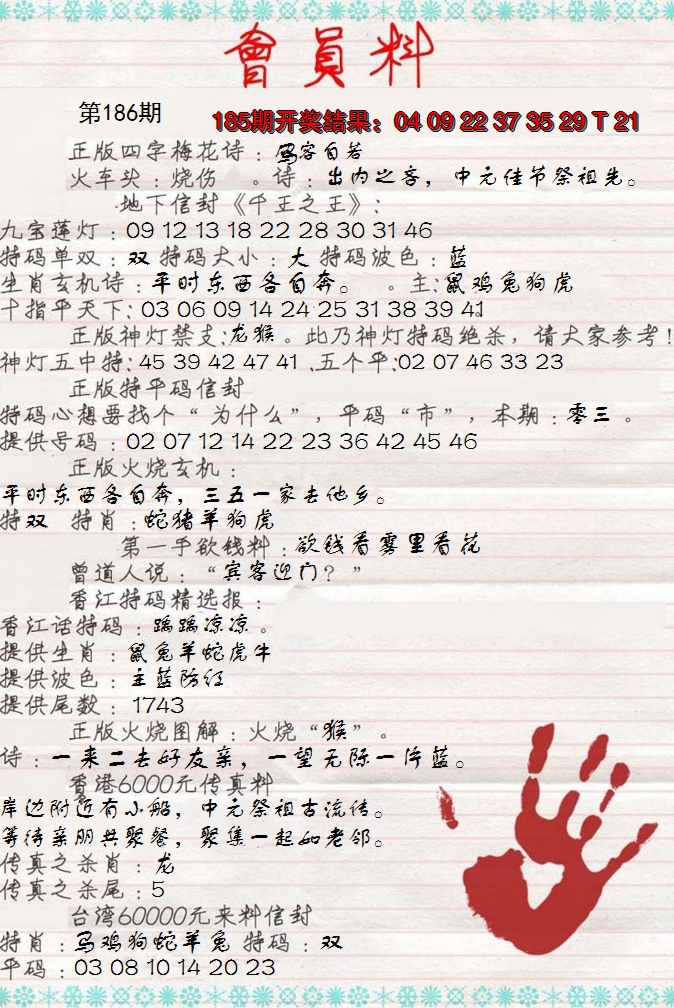 會員料
第186期
185期开奖结果：04 09 22 37 35 29 T 21
正版四字梅花诗：马客自若
火车头：烧伤 。诗：出内之客，中元佳节祭祖先。
地下信封《千王之王》：
九宝莲灯：09 12 13 18 22 28 30 31 46
特码单双：双 特码大小：大 特码波色：蓝
生肖玄机诗：平时东西各自奔。 。主：鼠鸡兔狗虎
十指平天下：03 06 09 14 24 25 31 38 39 41
正版神灯禁支：龙猴。此乃神灯特码绝杀，请大家参考！
神灯五中特：45 39 42 47 41 .五个平：02 07 46 33 23
正版特平码信封
特码心想要找个“为什么”，平码“市”，本期：零三 。
提供号码：02 07 12 14 22 23 36 42 45 46
正版火烧玄机：
平时东西各自奔，三五一家去他乡。
特双 特肖：蛇猪羊狗虎
第一手欲钱料：欲钱看雾里看花
曾道人说：“宾客迎门？”
香江特码精选报：
香江话特码：踽踽凉凉 。
提供生肖：鼠兔羊蛇虎牛
提供波色：主蓝防红
提供尾数：1743
正版火烧图解：火烧“猴”。
诗：一来二去好友亲，一望无际一片蓝。
香港6000元传真料
岸边附近有小船，中元祭祖古流传。
等待亲朋共聚餐，聚集一起如老邻。
传真之杀肖：龙
传真之杀尾：5
台湾60000元来料信封
特肖：马鸡狗蛇羊兔 特码：双
平码：03 08 10 14 20 23